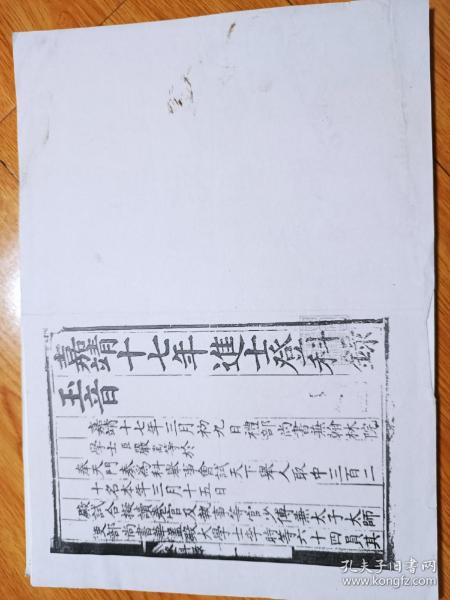 嘉靖十七年進士登科錄
玉音
嘉靖十七年三月初九日禮部尚書兼翰林院
學士臣嚴嵩等於
奉天門奏為科舉事會試天下舉人取中三百二
十名本年三月十五日
殿試合擬讀卷官及執事等官少傅兼太子太師
吏部尚書華蓋殿大學士李時等六十四員其
孔夫子旧书网
www.kongfz.com